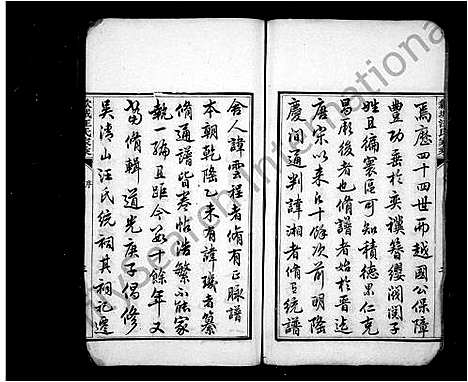 焉歷四十四世而越國公保障
豐功垂於奕禩簪纓閥閱子
姓且徧寰區可知積德累仁克
昌厥後者也脩譜者始於晉迄
唐宋以來凡十餘次前明隆
慶間通判諱湘者脩有統譜
舍人諱雲程者脩有正脉譜
本朝乾隆乙未有諱璣者纂
脩通譜皆卷帖浩繁不能家
執一編且距今數十餘年又
當脩輯道光庚子偶修
吳清山汪氏統祠其祠記遷
序
FamilySearch International